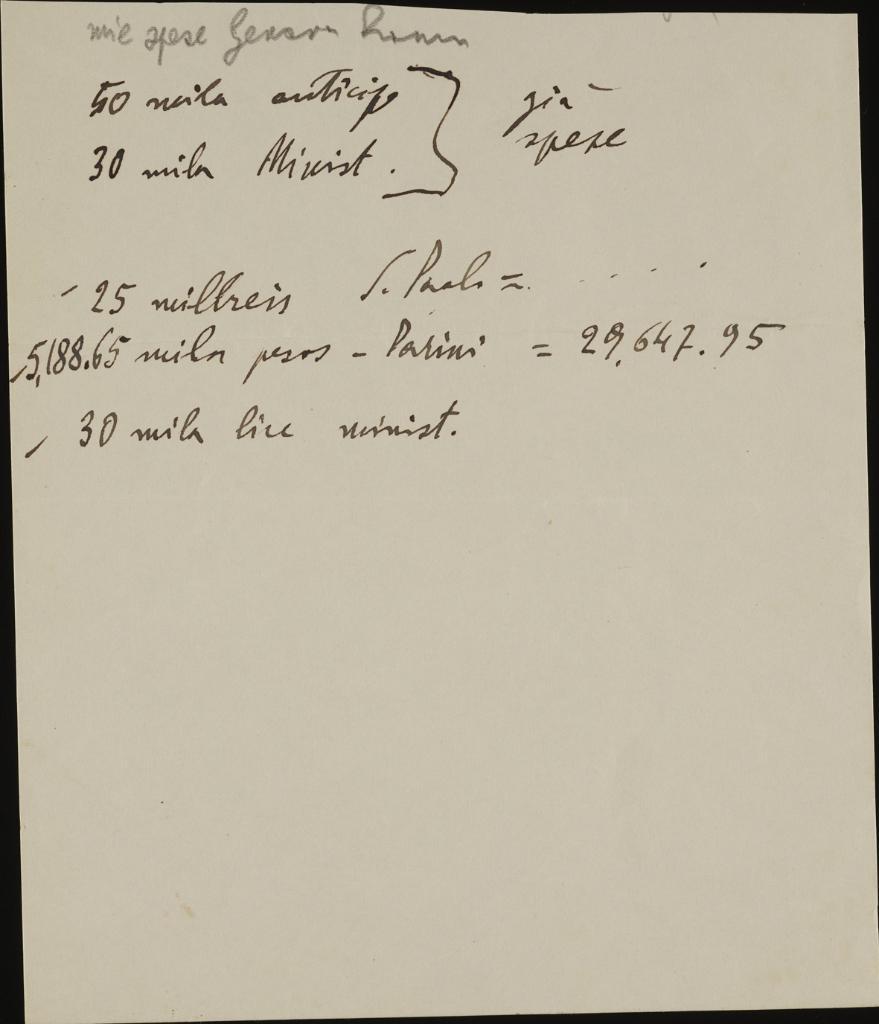 mie spese
50 mila anticipo } già spese
30 mila Minist.
25 millreis S. Paolo = . . . .
5,188.65 mila pesos - Parini = 29,647.95
30 mila lire minist.